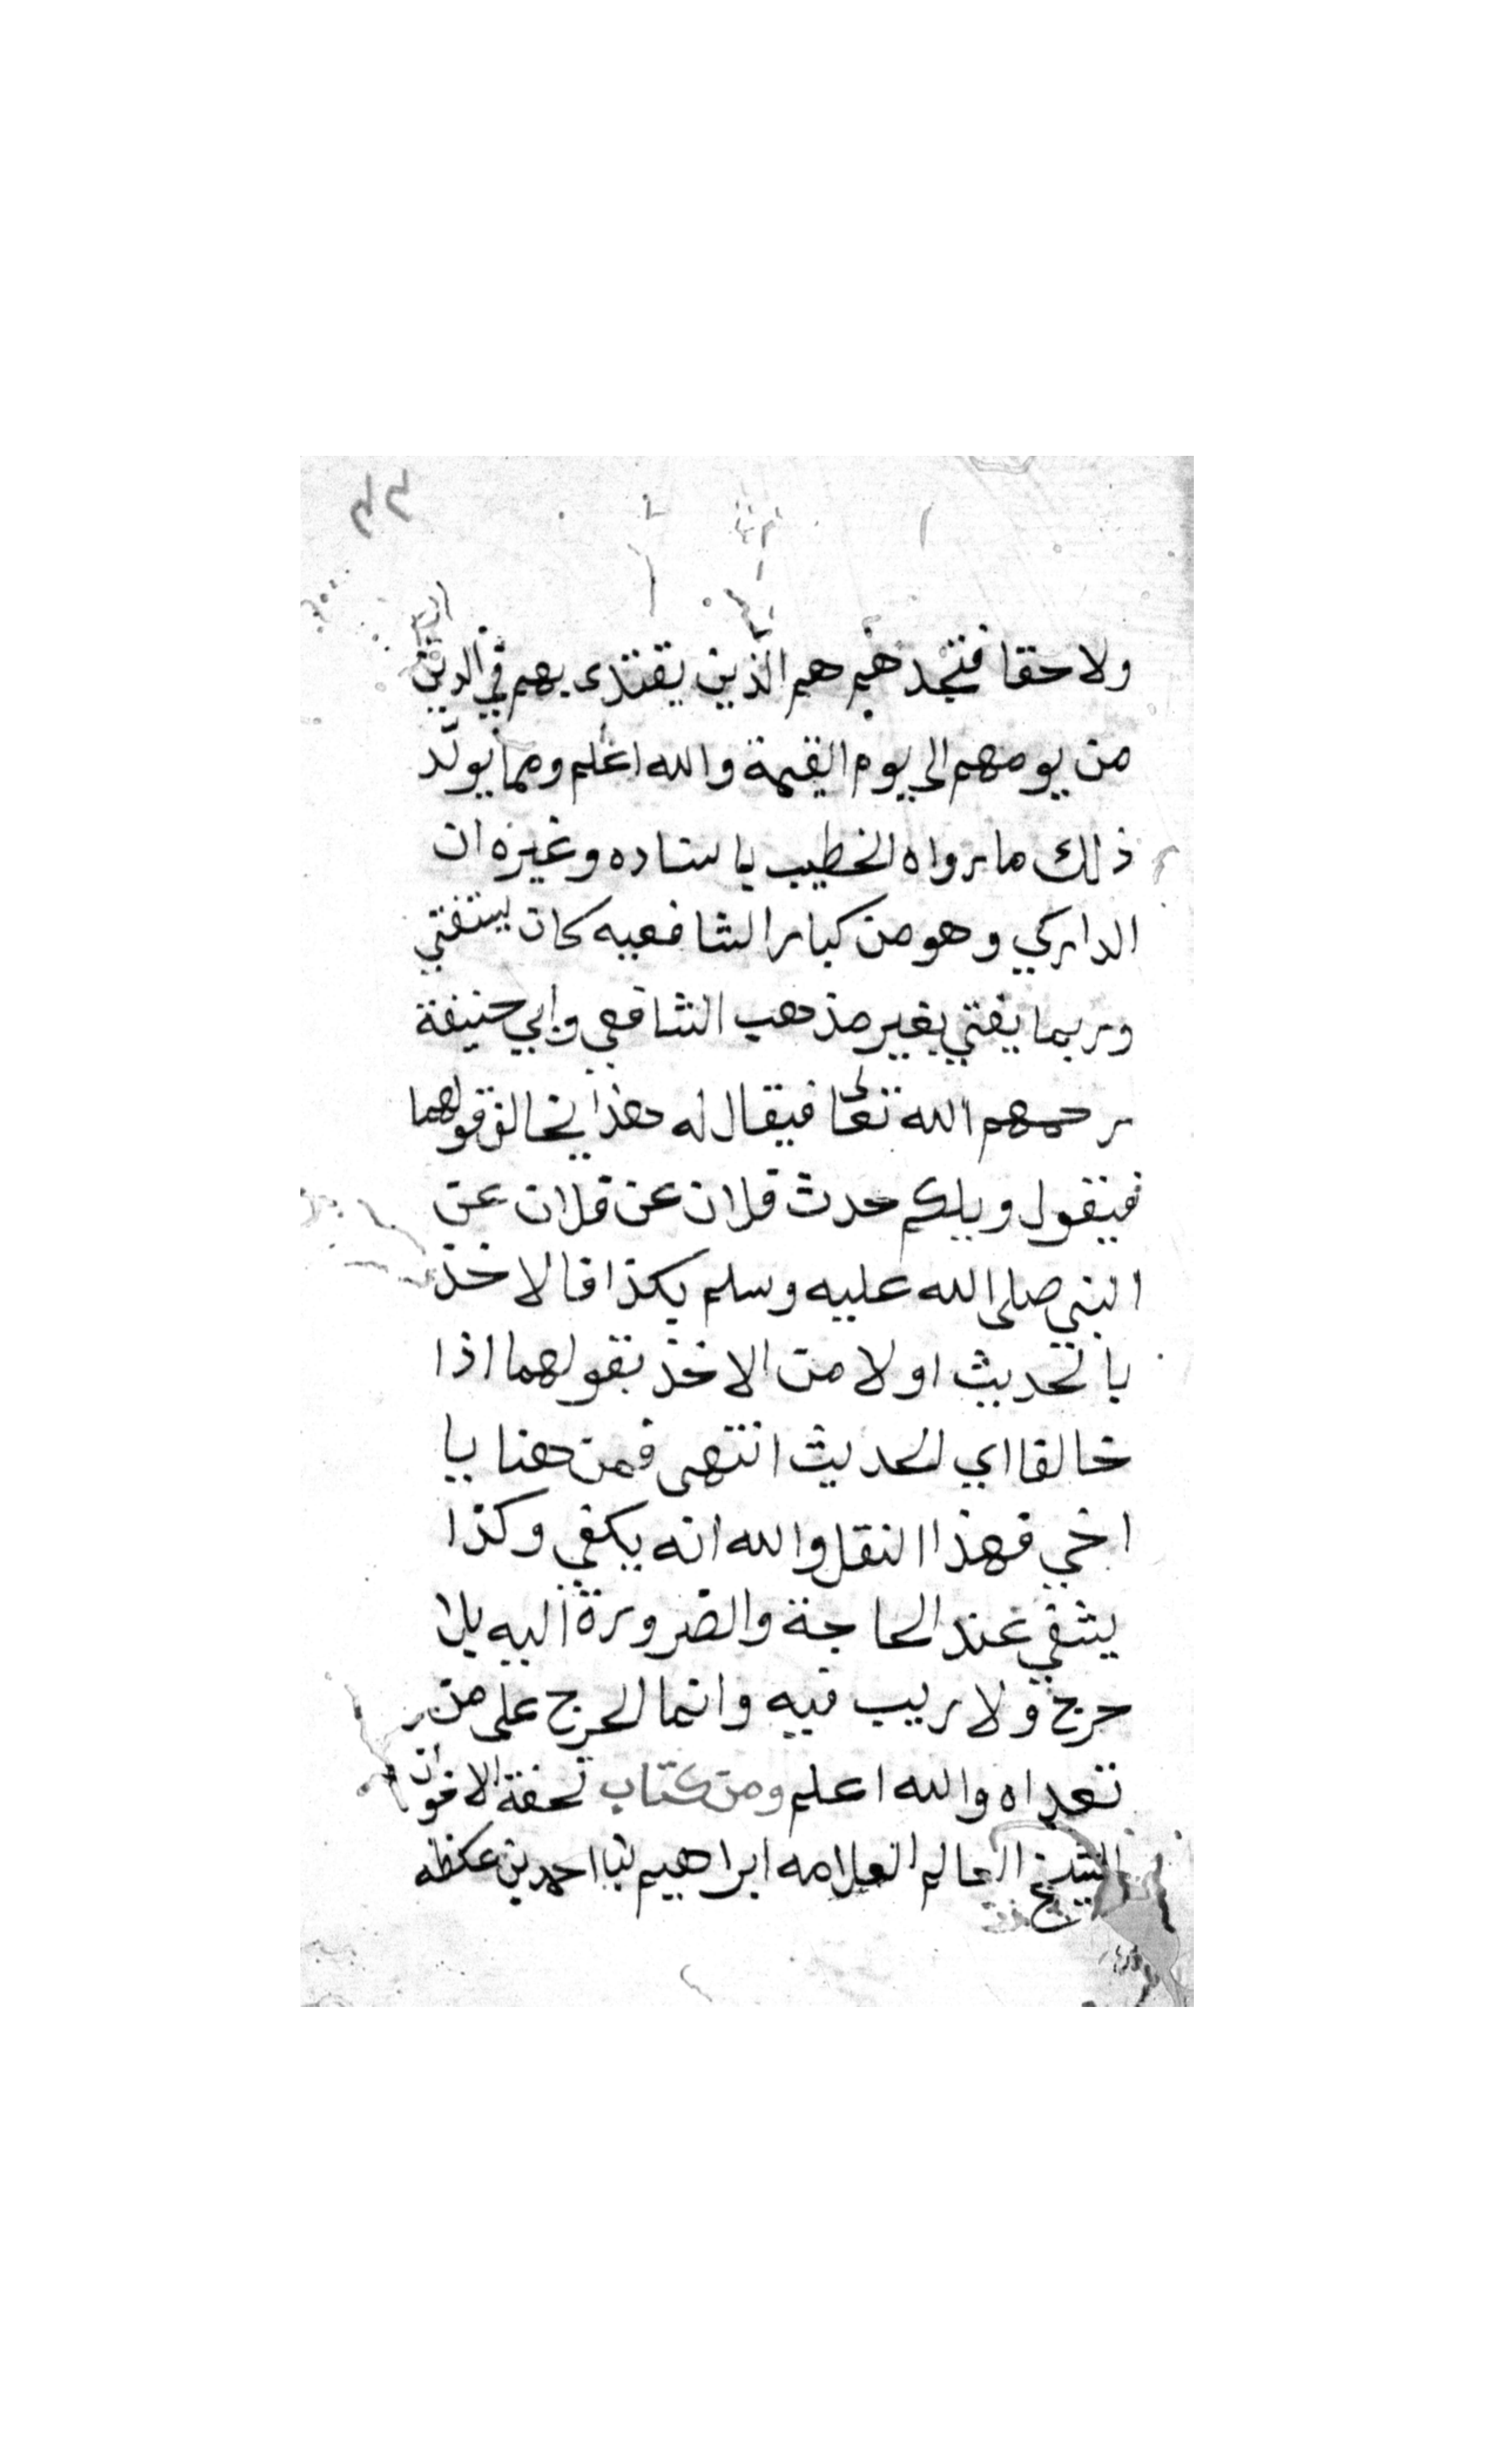 ٢٢
ولاحقا فتجدهم هم الذين يقتدى بهم في الدين
من يومهم الى يوم القيمة والله اعلم ومما يولد
ذلك ما رواه الخطيب باسناده وغيره ان
الداركي وهو من كبار الشافعيه كان يستفتي
وربما يفتي بغير مذهب الشافعي وابي حنيفة
رحمهم الله تعا فيقال له هذا يخالف قولهما
فيقول ويلكم حدث فلان عن فلان عن
النبي صلى الله عليه وسلم بكذا فالاخذ
بالحديث اولا من الاخذ بقولهما اذا
خالفا اي الحديث انتهى فمن هنا يا
اخي فهذا النقل والله انه يكفي وكذا
يشفي عند الحاجة والضرورة اليه بلا
حرج ولا ريب فيه وانما الحرج على من
تعداه والله اعلم ومن كتاب تحفة الاخوان
الشيخ العالم العلامه ابراهيم احمد بن